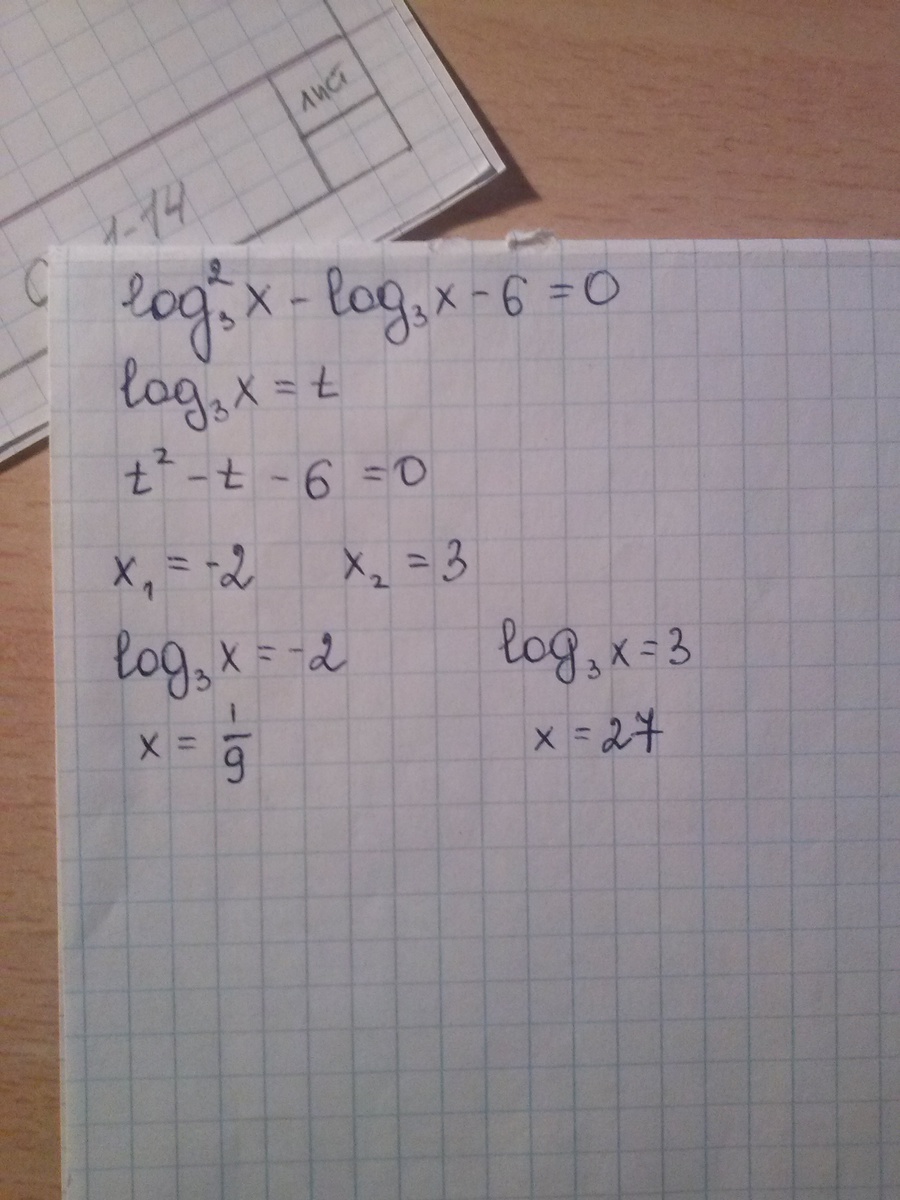 лист
1-14
log₃²x - log₃x - 6 = 0
log₃x = t
t² - t - 6 = 0
x₁ = -2 x₂ = 3
log₃x = -2 log₃x = 3
x = 1/9 x = 27